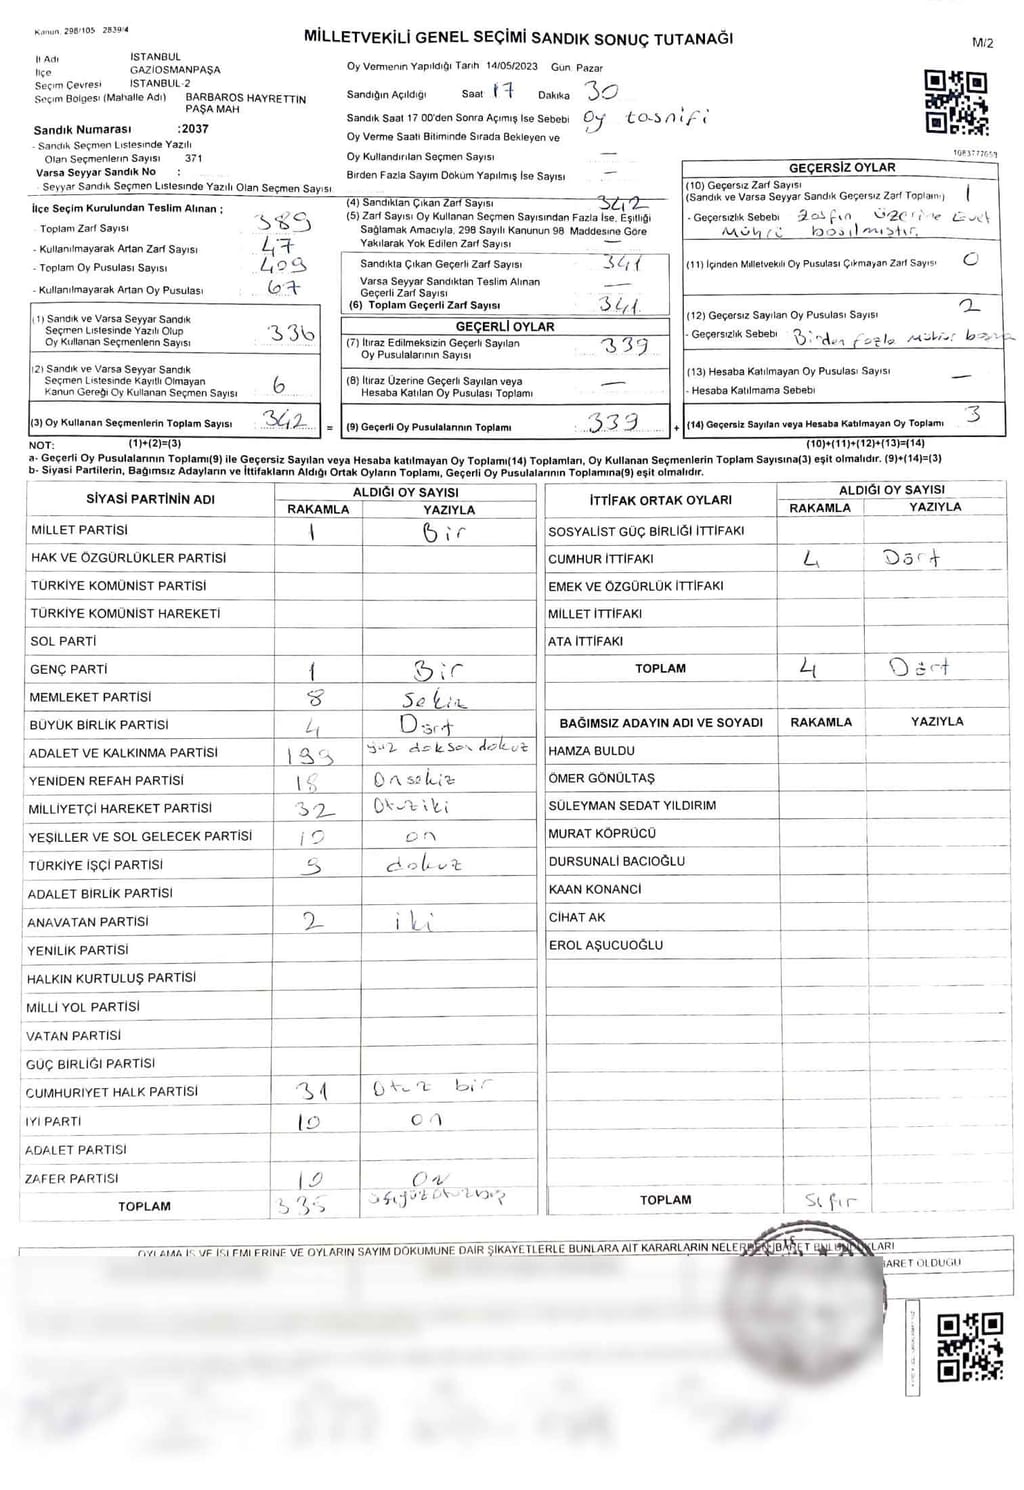 Kanun 298/105 2839/4
MİLLETVEKİLİ GENEL SEÇİMİ SANDIK SONUÇ TUTANAĞI
M/2
İl Adı İSTANBUL
İlçe GAZİOSMANPAŞA
Seçim Çevresi İSTANBUL-2
Seçim Bölgesi (Mahalle Adı) BARBAROS HAYRETTİN
PAŞA MAH
Sandık Numarası :2037
- Sandık Seçmen Listesinde Yazılı
Olan Seçmenlerin Sayısı 371
Varsa Seyyar Sandık No :
- Seyyar Sandık Seçmen Listesinde Yazılı Olan Seçmen Sayısı
Oy Vermenin Yapıldığı Tarih 14/05/2023 Gün Pazar
Sandığın Açıldığı Saat 17 Dakika 30
Sandık Saat 17 00'den Sonra Açımış İse Sebebi Oy tasnifi
Oy Verme Saati Bitiminde Sırada Bekleyen ve
Oy Kullandırılan Seçmen Sayısı —
Birden Fazla Sayım Döküm Yapılmış İse Sayısı —
İlçe Seçim Kurulundan Teslim Alınan ;
- Toplam Zarf Sayısı 389
- Kullanılmayarak Artan Zarf Sayısı 47
- Toplam Oy Pusulası Sayısı 409
- Kullanılmayarak Artan Oy Pusulası 67
(1) Sandık ve Varsa Seyyar Sandık
Seçmen Listesinde Yazılı Olup
Oy Kullanan Seçmenlerin Sayısı 336
(2) Sandık ve Varsa Seyyar Sandık
Seçmen Listesinde Kayıtlı Olmayan
Kanun Gereği Oy Kullanan Seçmen Sayısı 6
(3) Oy Kullanan Seçmenlerin Toplam Sayısı 342
(4) Sandıktan Çıkan Zarf Sayısı 342
(5) Zarf Sayısı Oy Kullanan Seçmen Sayısından Fazla İse, Eşitliği
Sağlamak Amacıyla, 298 Sayılı Kanunun 98 Maddesine Göre
Yakılarak Yok Edilen Zarf Sayısı —
Sandıkta Çıkan Geçerli Zarf Sayısı 341
Varsa Seyyar Sandıktan Teslim Alınan
Geçerli Zarf Sayısı —
(6) Toplam Geçerli Zarf Sayısı 341
GEÇERLİ OYLAR
(7) İtiraz Edilmeksizin Geçerli Sayılan
Oy Pusulalarının Sayısı 339
(8) İtiraz Üzerine Geçerli Sayılan veya
Hesaba Katılan Oy Pusulası Toplamı —
= (9) Geçerli Oy Pusulalarının Toplamı 339
GEÇERSİZ OYLAR
(10) Geçersiz Zarf Sayısı
(Sandık ve Varsa Seyyar Sandık Geçersiz Zarf Toplamı) 1
- Geçersizlik Sebebi Zarfın üzerine Evet
Mührü basılmıştır.
(11) İçinden Milletvekili Oy Pusulası Çıkmayan Zarf Sayısı 0
(12) Geçersiz Sayılan Oy Pusulası Sayısı 2
- Geçersizlik Sebebi Birden fazla mühür
(13) Hesaba Katılmayan Oy Pusulası Sayısı —
- Hesaba Katılmama Sebebi
+ (14) Geçersiz Sayılan veya Hesaba Katılmayan Oy Toplamı 3
NOT: (1)+(2)=(3) (10)+(11)+(12)+(13)=(14)
a- Geçerli Oy Pusulalarının Toplamı(9) ile Geçersiz Sayılan veya Hesaba katılmayan Oy Toplamı(14) Toplamları, Oy Kullanan Seçmenlerin Toplam Sayısına(3) eşit olmalıdır. (9)+(14)=(3)
b- Siyasi Partilerin, Bağımsız Adayların ve İttifakların Aldığı Ortak Oyların Toplamı, Geçerli Oy Pusulalarının Toplamına(9) eşit olmalıdır.
SİYASİ PARTİNİN ADI ALDIĞI OY SAYISI
RAKAMLA YAZIYLA
MİLLET PARTİSİ 1 Bir
HAK VE ÖZGÜRLÜKLER PARTİSİ
TÜRKİYE KOMÜNİST PARTİSİ
TÜRKİYE KOMÜNİST HAREKETİ
SOL PARTİ
GENÇ PARTİ 1 Bir
MEMLEKET PARTİSİ 8 Sekiz
BÜYÜK BİRLİK PARTİSİ 4 Dört
ADALET VE KALKINMA PARTİSİ 199 yüz doksan dokuz
YENİDEN REFAH PARTİSİ 18 Onsekiz
MİLLİYETÇİ HAREKET PARTİSİ 32 Otuziki
YEŞİLLER VE SOL GELECEK PARTİSİ 10 on
TÜRKİYE İŞÇİ PARTİSİ 9 dokuz
ADALET BİRLİK PARTİSİ
ANAVATAN PARTİSİ 2 iki
YENİLİK PARTİSİ
HALKIN KURTULUŞ PARTİSİ
MİLLİ YOL PARTİSİ
VATAN PARTİSİ
GÜÇ BİRLİĞİ PARTİSİ
CUMHURİYET HALK PARTİSİ 31 Otuz bir
İYİ PARTİ 10 on
ADALET PARTİSİ
ZAFER PARTİSİ 10 On
TOPLAM 335 üçyüzotuzbeş
İTTİFAK ORTAK OYLARI ALDIĞI OY SAYISI
RAKAMLA YAZIYLA
SOSYALİST GÜÇ BİRLİĞİ İTTİFAKI
CUMHUR İTTİFAKI 4 Dört
EMEK VE ÖZGÜRLÜK İTTİFAKI
MİLLET İTTİFAKI
ATA İTTİFAKI
TOPLAM 4 Dört
BAĞIMSIZ ADAYIN ADI VE SOYADI RAKAMLA YAZIYLA
HAMZA BULDU
ÖMER GÖNÜLTAŞ
SÜLEYMAN SEDAT YILDIRIM
MURAT KÖPRÜCÜ
DURSUNALİ BACIOĞLU
KAAN KONANCİ
CİHAT AK
EROL AŞUCUOĞLU
TOPLAM Sıfır
OYLAMA İŞ VE İŞLEMLERİNE VE OYLARIN SAYIM DÖKÜMÜNE DAİR ŞİKAYETLERLE BUNLARA AİT KARARLARIN NELERDEN İBARET BULUNDUKLARI
OLDUĞU